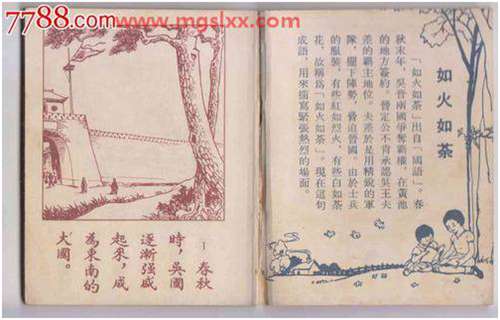 7788.com www.mgslxx.com
如火如荼
「如火如荼」出自「國語」。春
秋末年，吳晉兩國爭奪霸權，在黃池
的地方簽約。晉定公不肯承認吳王夫
差的霸主地位。夫差於是用精銳的軍
隊，擺下陣勢，脅迫晉國。由於士兵
的服裝，有些紅如烈火，有些白如荼
花，故稱爲「如火如荼」。現在這句
成語，用來描寫緊張熱烈的場面。
1 春秋
時，吳國
逐漸强盛
起來，成
為東南的
大國。